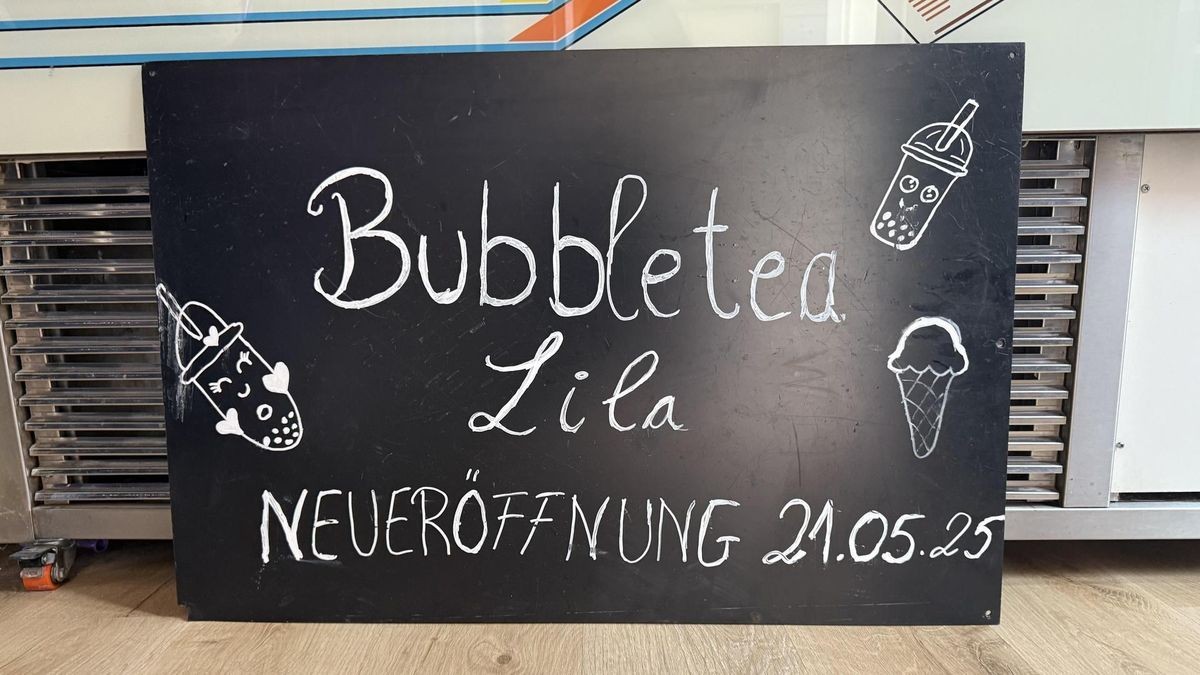 Bubbletea
Lila
NEUERÖFFNUNG 21.05.25